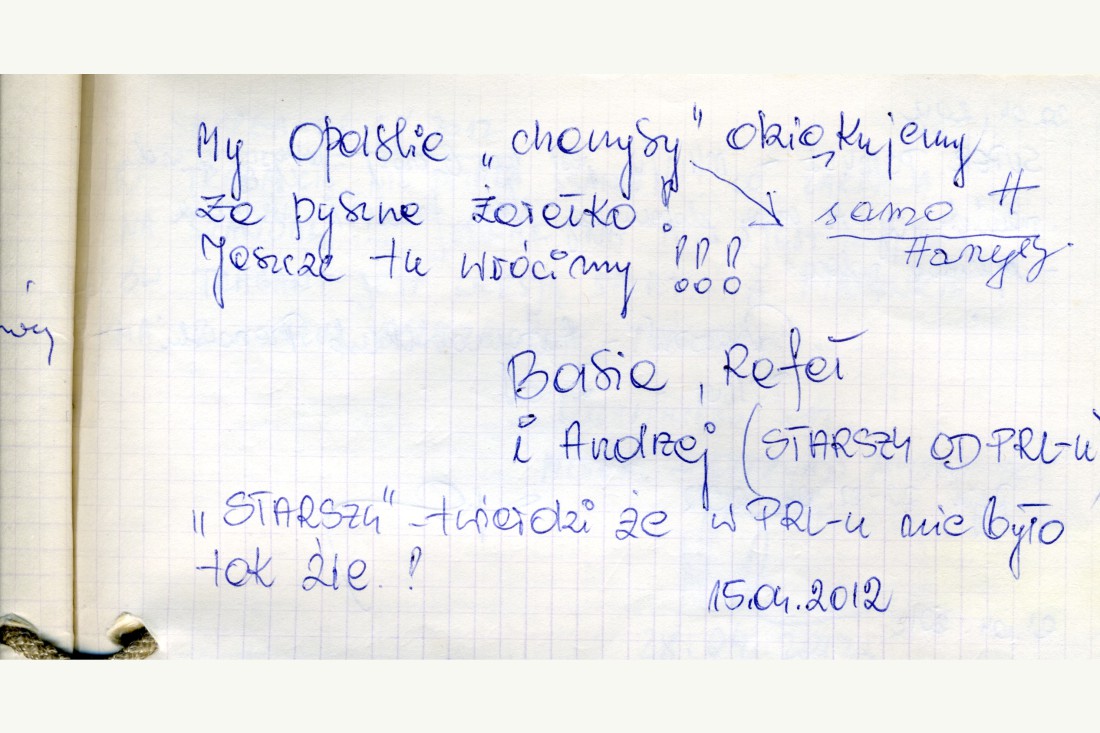 My Opolskie „chanysy" dziękujemy
za pyszne żarełko!
samo H
Jeszcze tu wrócimy!!!
Hanysy
Basia, Rafał
i Andrzej (STARSZY OD PRL-u)
„STARSZY" - twierdzi że w PRL-u nie było
tak źle.!
15.04.2012